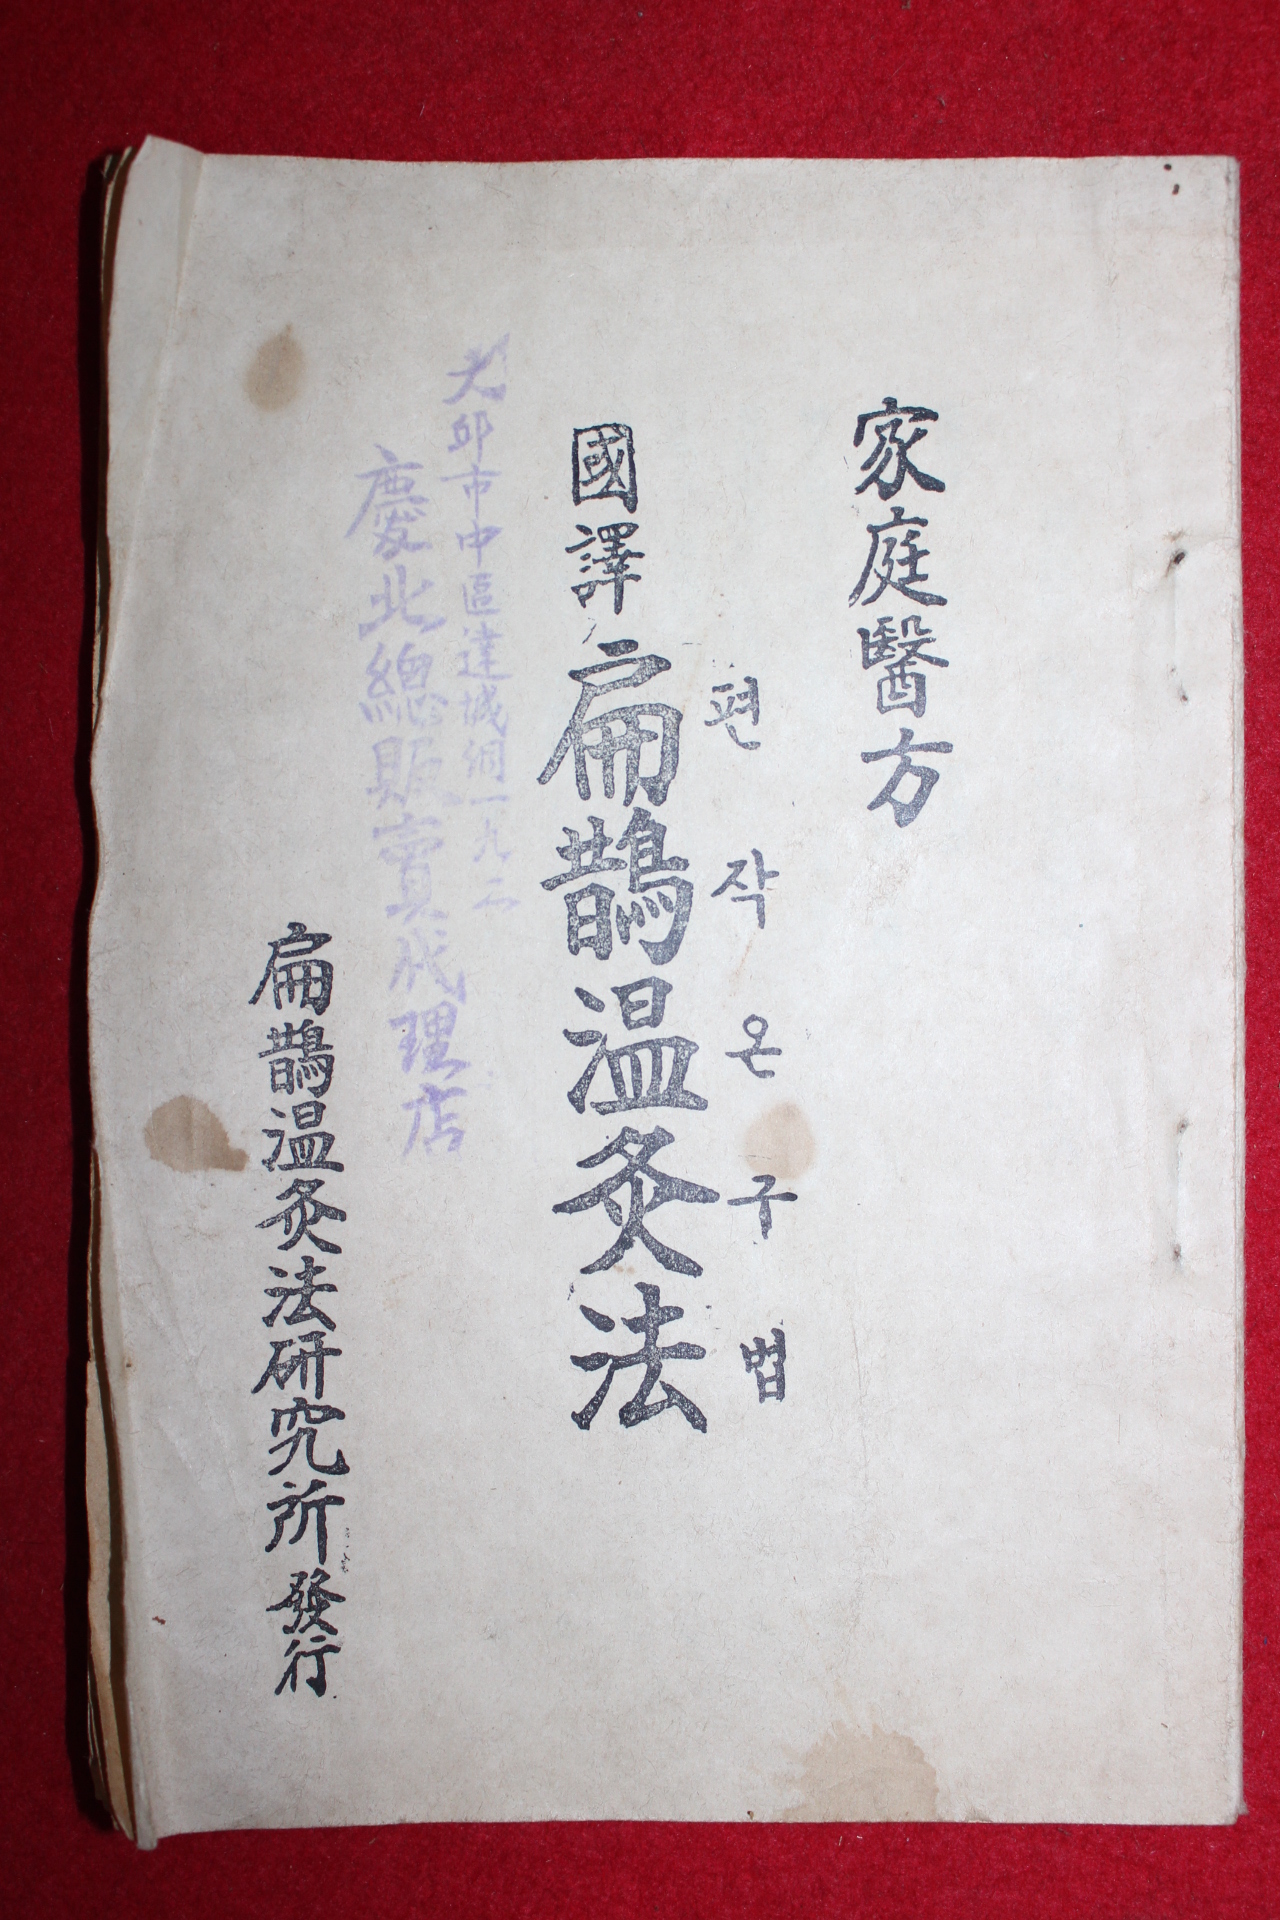 家庭醫方
편작온구법
國譯 扁鵲温灸法
大邱市中區達城洞一九二
慶北總販賣代理店
扁鵲温灸法研究所 發行